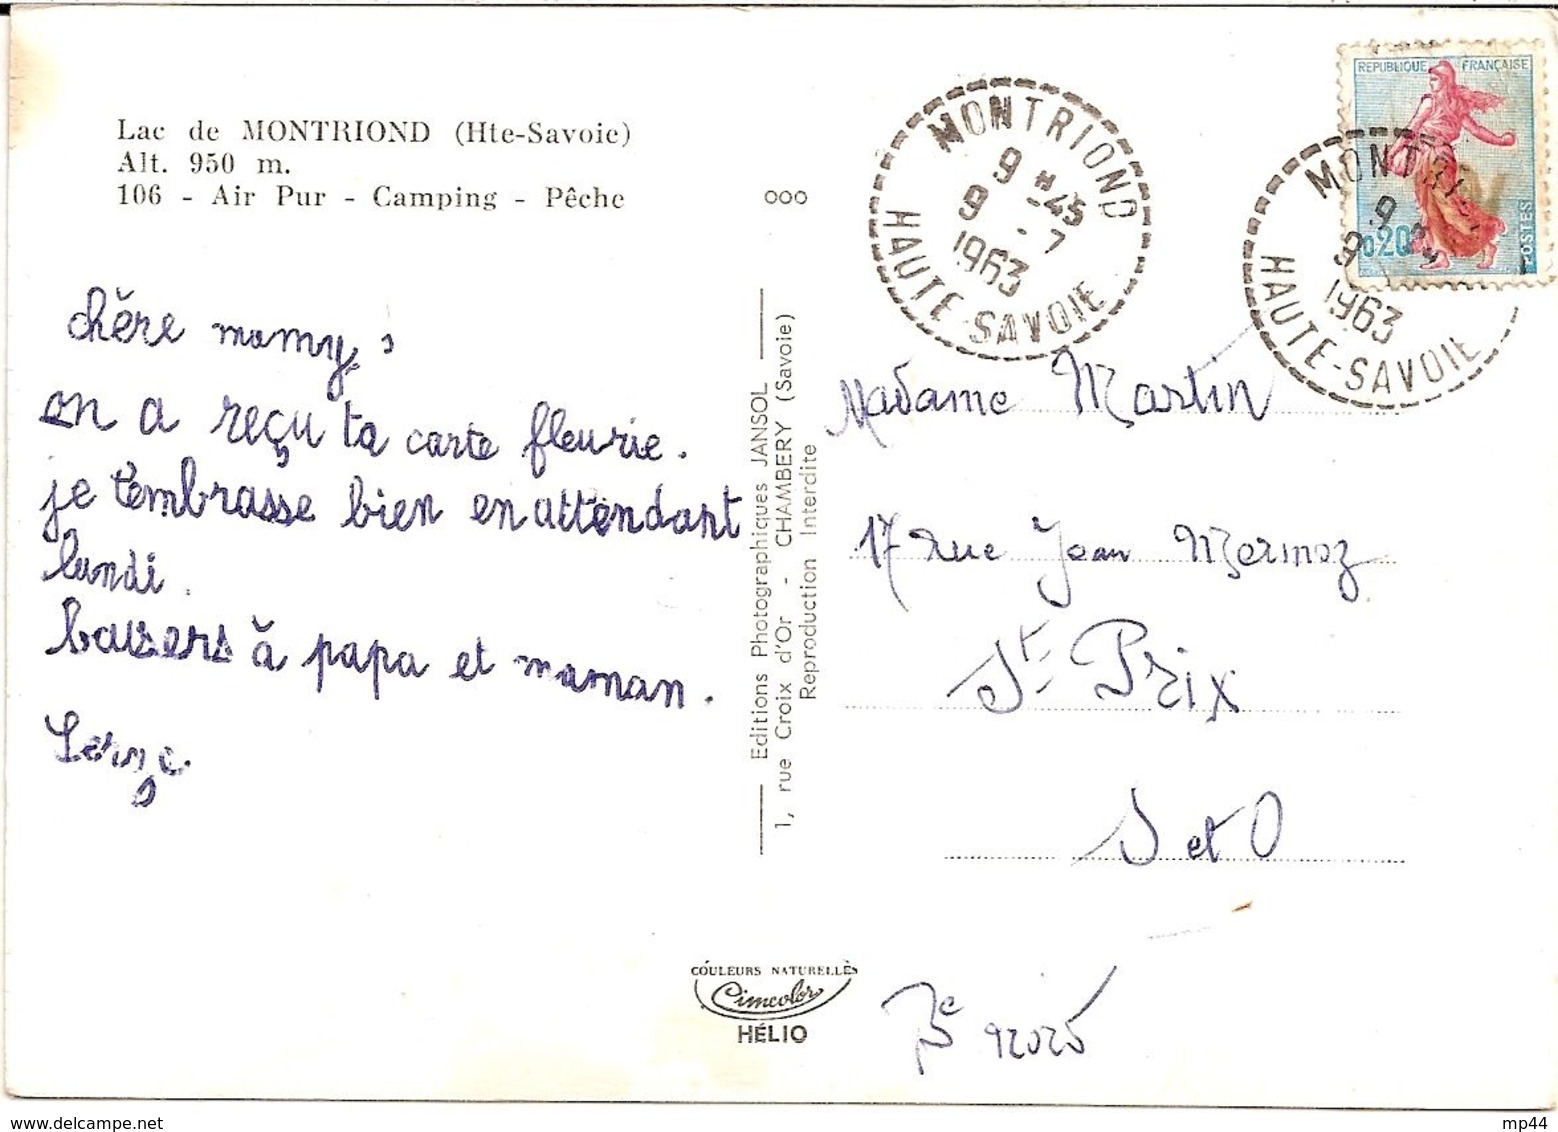 Lac de MONTRIOND (Hte-Savoie)
Alt. 950 m.
106 - Air Pur - Camping - Pêche
chère mamy,
on a reçu ta carte fleurie.
je t'embrasse bien en attendant
lundi.
baisers à papa et maman.
Editions Photographiques JANSOL
1, rue Croix d'Or - CHAMBERY (Savoie)
Reproduction Interdite
COULEURS NATURELLES
Cimcolor
HÉLIO
ooo
MONTRIOND
9 H -45
9 . 7
1963
HAUTE-SAVOIE
REPUBLIQUE FRANÇAISE
0,20
POSTES
MONTRIOND
9
9
1963
HAUTE-SAVOIE
Madame Martin
17 rue Jean Mermoz
St-Prix
S et O
mp44